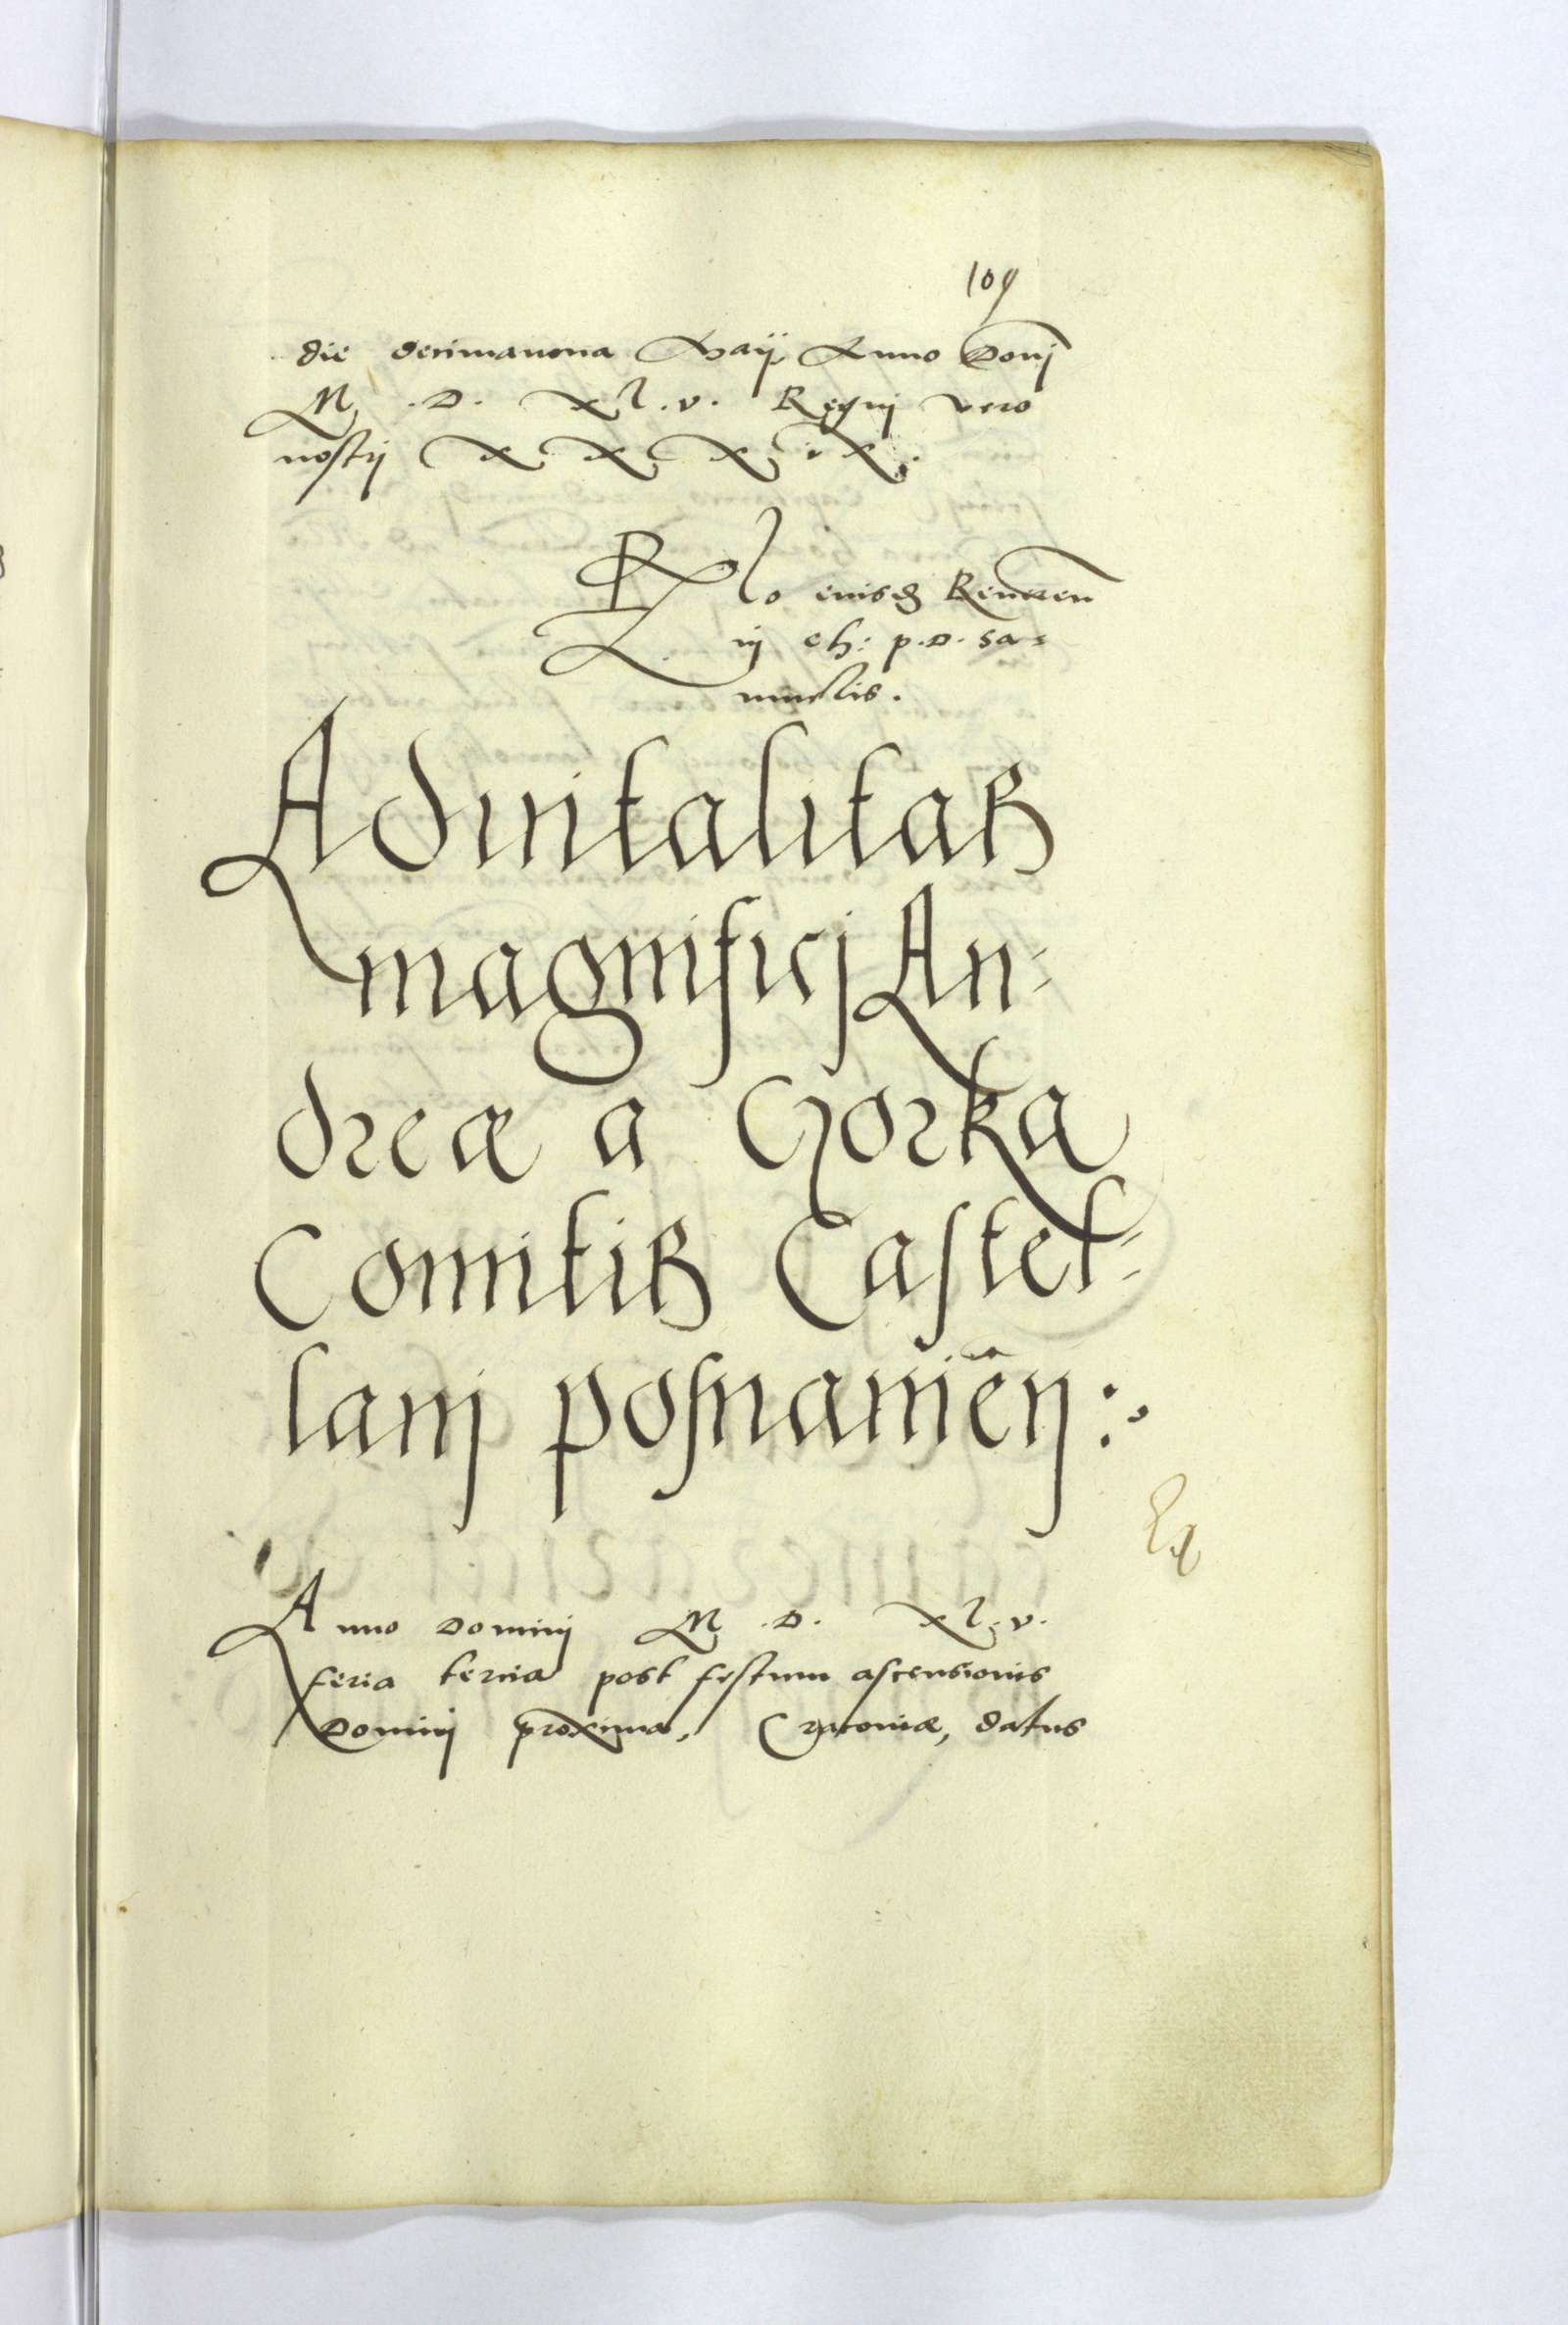 109
die decimanona Maij Anno Domj
M. D. XL. V. Regnj vero
nostrj XXXIX.
Rlo eiusdem Reueren
in ch: p. D. Sa=
muelis.
Aduitalitas
magnificj An=
dreæ a Gorka
Comitis Castel=
lanj posnanien:
Anno Dominj M. D. XL. V.
feria tercia post festum ascensionis
Dominj proxima, Cracouiæ, datus